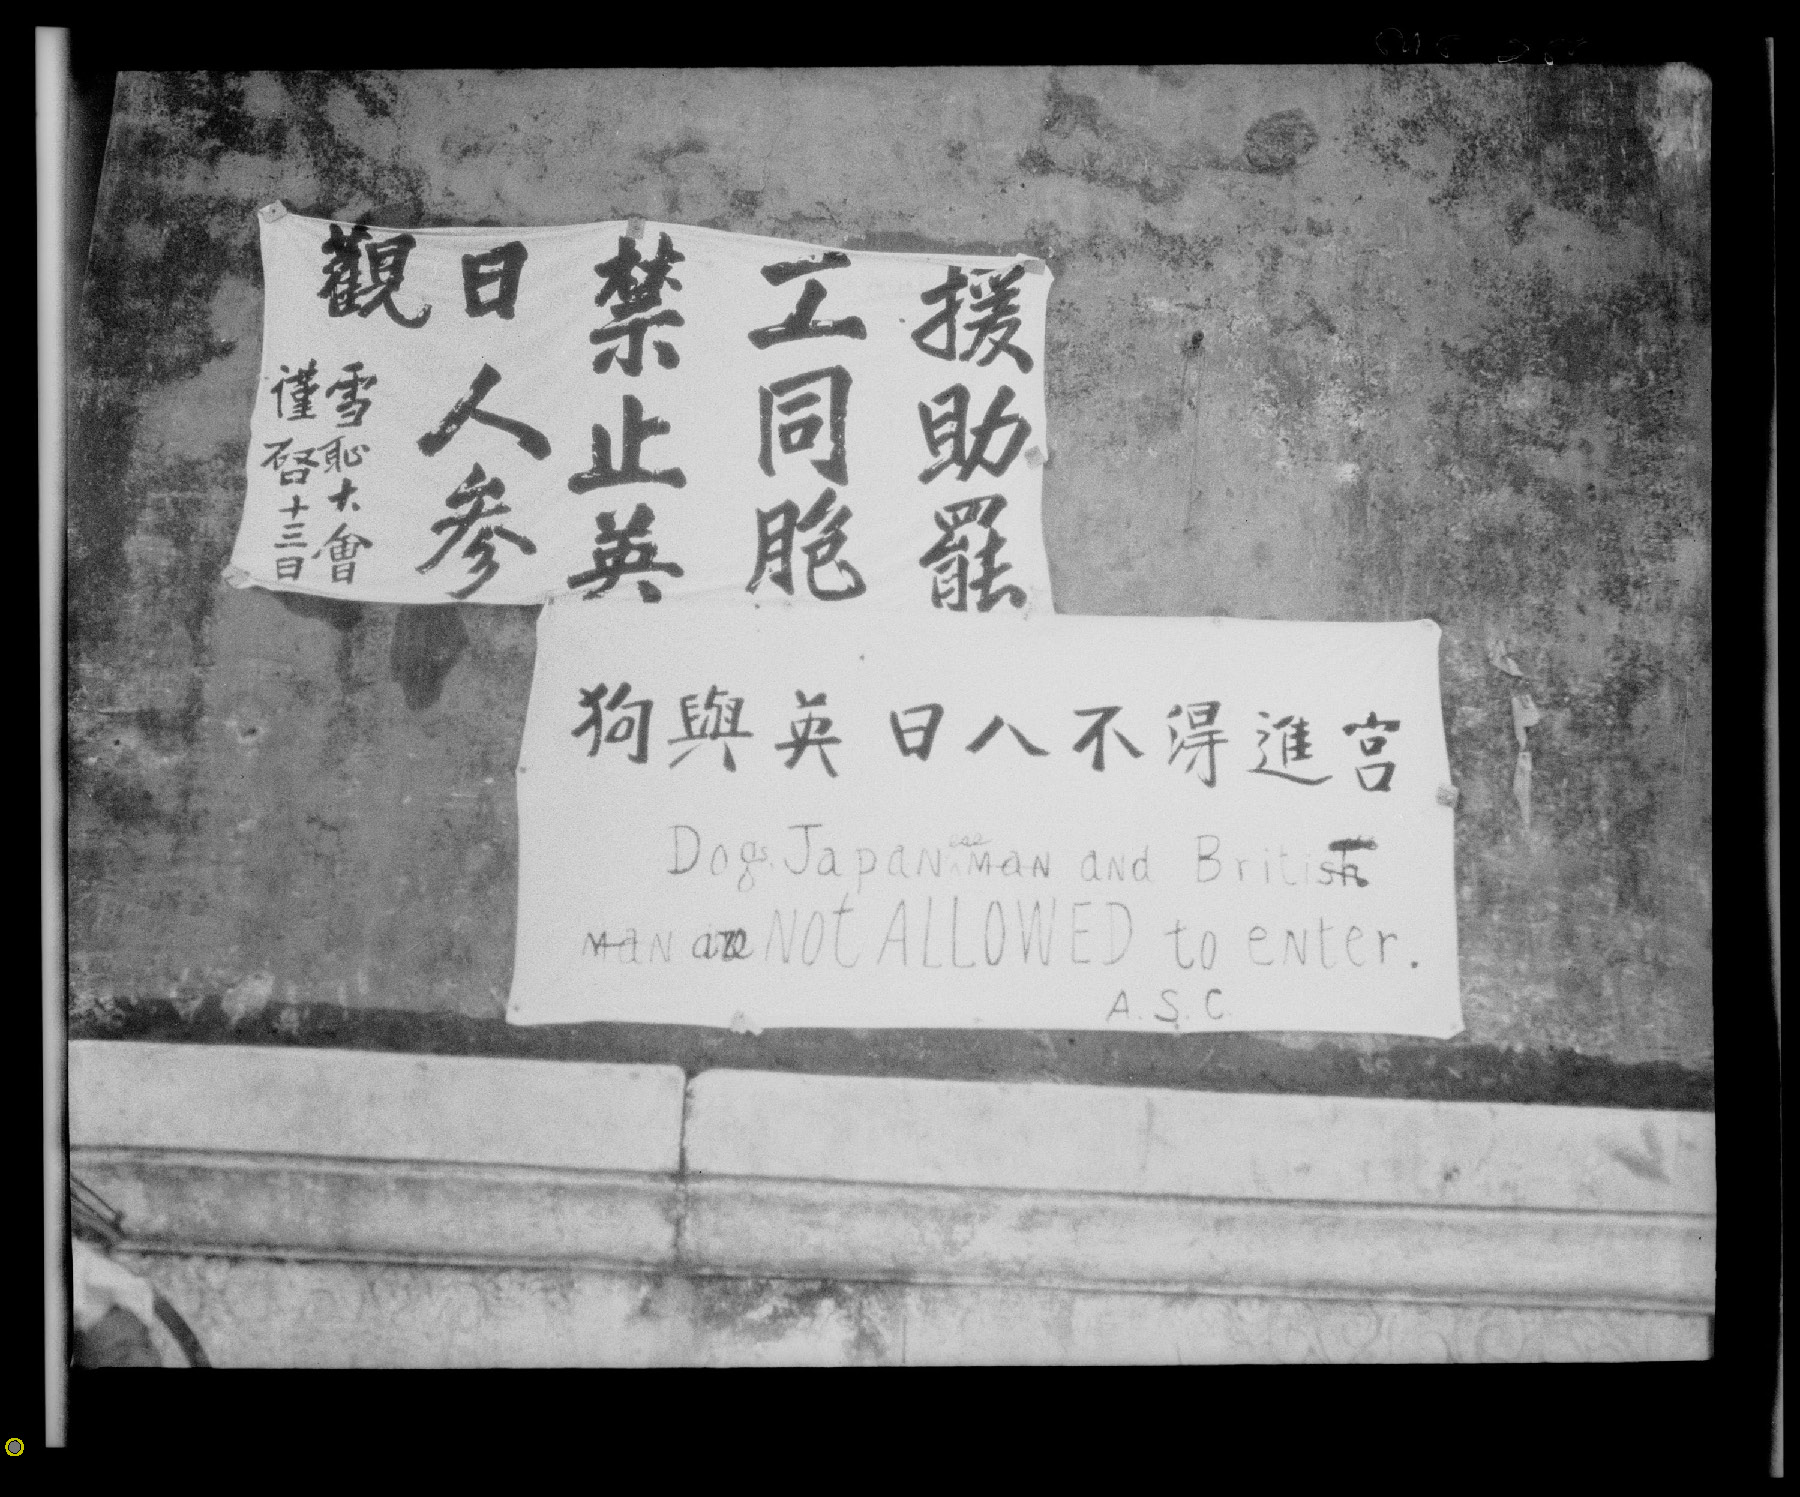 援助罷
工同胞
禁止英
日人參
觀
雪恥大會
謹啓十三日
狗與英日人不得進宮
Dogs, Japanese man and British
man are NOT ALLOWED to enter.
A.S.C.